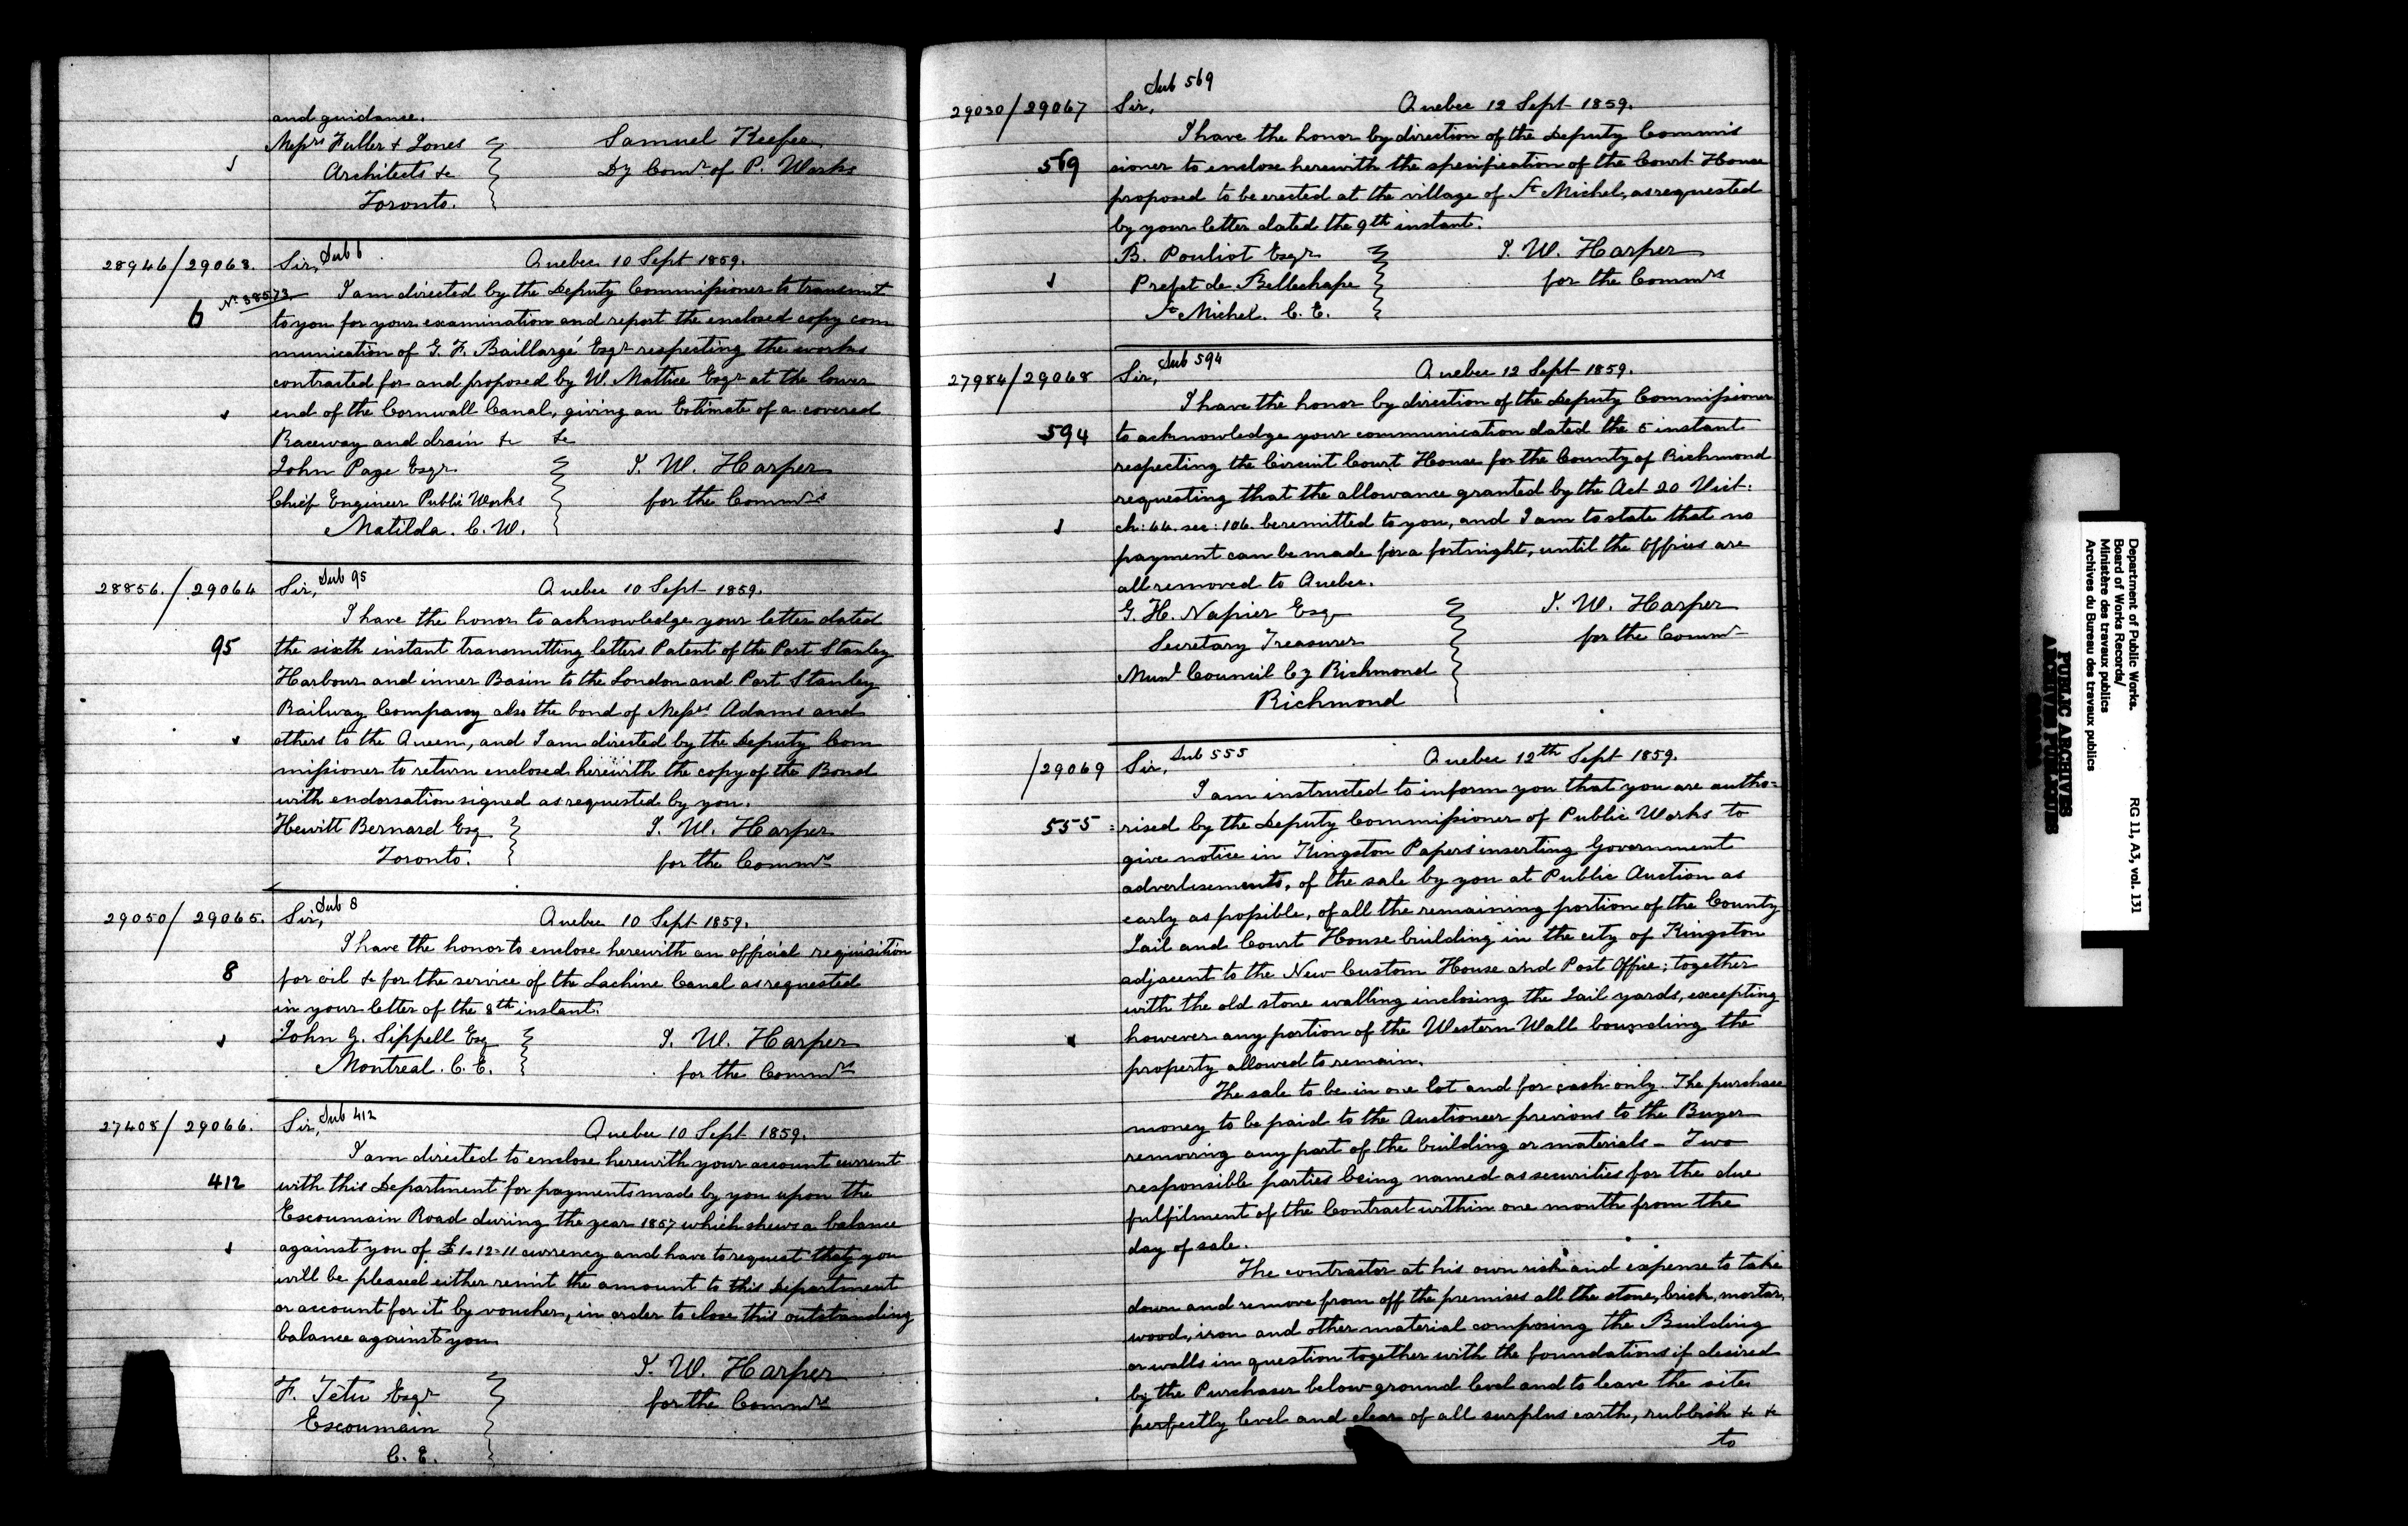 and guidance.
Messrs Fuller & Jones
Samuel Keefer
Architects &c
Dy Comr. of P. Works
Toronto.
28946/29063.
Sir, Sub 6
Quebec 10 Sept 1859.
No 38573
I am directed by the Deputy Commissioner to transmit
6
to you for your examination and report the enclosed copy com
munication of G. F. Baillargé Esqr respecting the works
contracted for and proposed by W. Mattice Esqr at the lower
end of the Cornwall Canal, giving an Estimate of a covered
Raceway and drain &c &c
John Page Esqr
J. W. Harper
Chief Engineer Public Works
for the Commrs
Matilda. C. W.
28856./29064
Sir, Sub 95
Quebec 10 Sept 1859.
I have the honor to acknowledge your letter dated
95
the sixth instant transmitting letters Patent of the Port Stanley
Harbour and inner Basin to the London and Port Stanley
Railway Company also the bond of Messrs. Adams and
others to the Queen, and I am directed by the Deputy Com
missioner to return enclosed herewith the copy of the Bond
with endorsation signed as requested by you.
Hewitt Bernard Esq
J. W. Harper
Toronto.
for the Commrs
29050/29065.
Sir, Sub 8
Quebec 10 Sept 1859.
I have the honor to enclose herewith an official requisition
8
for oil &c for the service of the Lachine Canal as requested
in your letter of the 8th instant.
John G. Sippell Esq
J. W. Harper
Montreal. C. E.
for the Commrs
27408/29066.
Sir, Sub 412
Quebec 10 Sept 1859.
I am directed to enclose herewith your account current
412
with this Department for payments made by you upon the
Escoumain Road during the year 1857 which shews a balance
against you of £1-12-11 currency and have to request that you
will be pleased either remit the amount to this Department
or account for it by voucher, in order to close this outstanding
balance against you
J. W. Harper
F. Têtu Esqr
for the Commrs
Escoumain
C. E.
Sub 569
29030/29067
Sir,
Quebec 12 Sept 1859.
I have the honor by direction of the Deputy Commis
569
sioner to enclose herewith the specification of the Court House
proposed to be erected at the village of St Michel, as requested
by your letter dated the 9th instant.
B. Pouliot Esqr
J. W. Harper
Prefet de Bellechasse
for the Commrs
St Michel. C. E.
27984/29068
Sir, Sub 594
Quebec 12 Sept 1859.
I have the honor by direction of the Deputy Commissioner
594
to acknowledge your communication dated the 5 instant
respecting the Circuit Court House for the County of Richmond
requesting that the allowance granted by the Act 20 Vict:
ch: 44. sec: 106. be remitted to you, and I am to state that no
payment can be made for a fortnight, until the Offices are
all removed to Quebec.
G. H. Napier Esq
J. W. Harper
Secretary Treasurer
for the Commr
Munl Council Cy Richmond
Richmond
/29069
Sir, Sub 555
Quebec 12th Sept 1859.
I am instructed to inform you that you are autho=
555
=rised by the Deputy Commissioner of Public Works to
give notice in Kingston Papers inserting Government
advertisements, of the sale by you at Public Auction as
early as possible, of all the remaining portion of the County
Jail and Court House building in the city of Kingston
adjacent to the New Custom House and Post Office; together
with the old stone walling inclosing the Jail yards, excepting
however any portion of the Western Wall bounding the
property allowed to remain.
The sale to be in one lot and for cash only. The purchase
money to be paid to the Auctioneer previous to the Buyer
removing any part of the building or materials - Two
responsible parties being named as securities for the due
fulfilment of the Contract within one month from the
day of sale.
The contractor at his own risk and expense to take
down and remove from off the premises all the stone, brick, mortar,
wood, iron and other material composing the Building
or walls in question together with the foundations if desired
by the Purchaser below ground level and to leave the site
perfectly level and clear of all surplus earth, rubbish &c &c
to
Department of Public Works.
Board of Works Records/
Ministère des travaux publics
Archives du Bureau des travaux publics
RG 11, A3, vol. 131
PUBLIC ARCHIVES
ARCHIVES PUBLIQUES